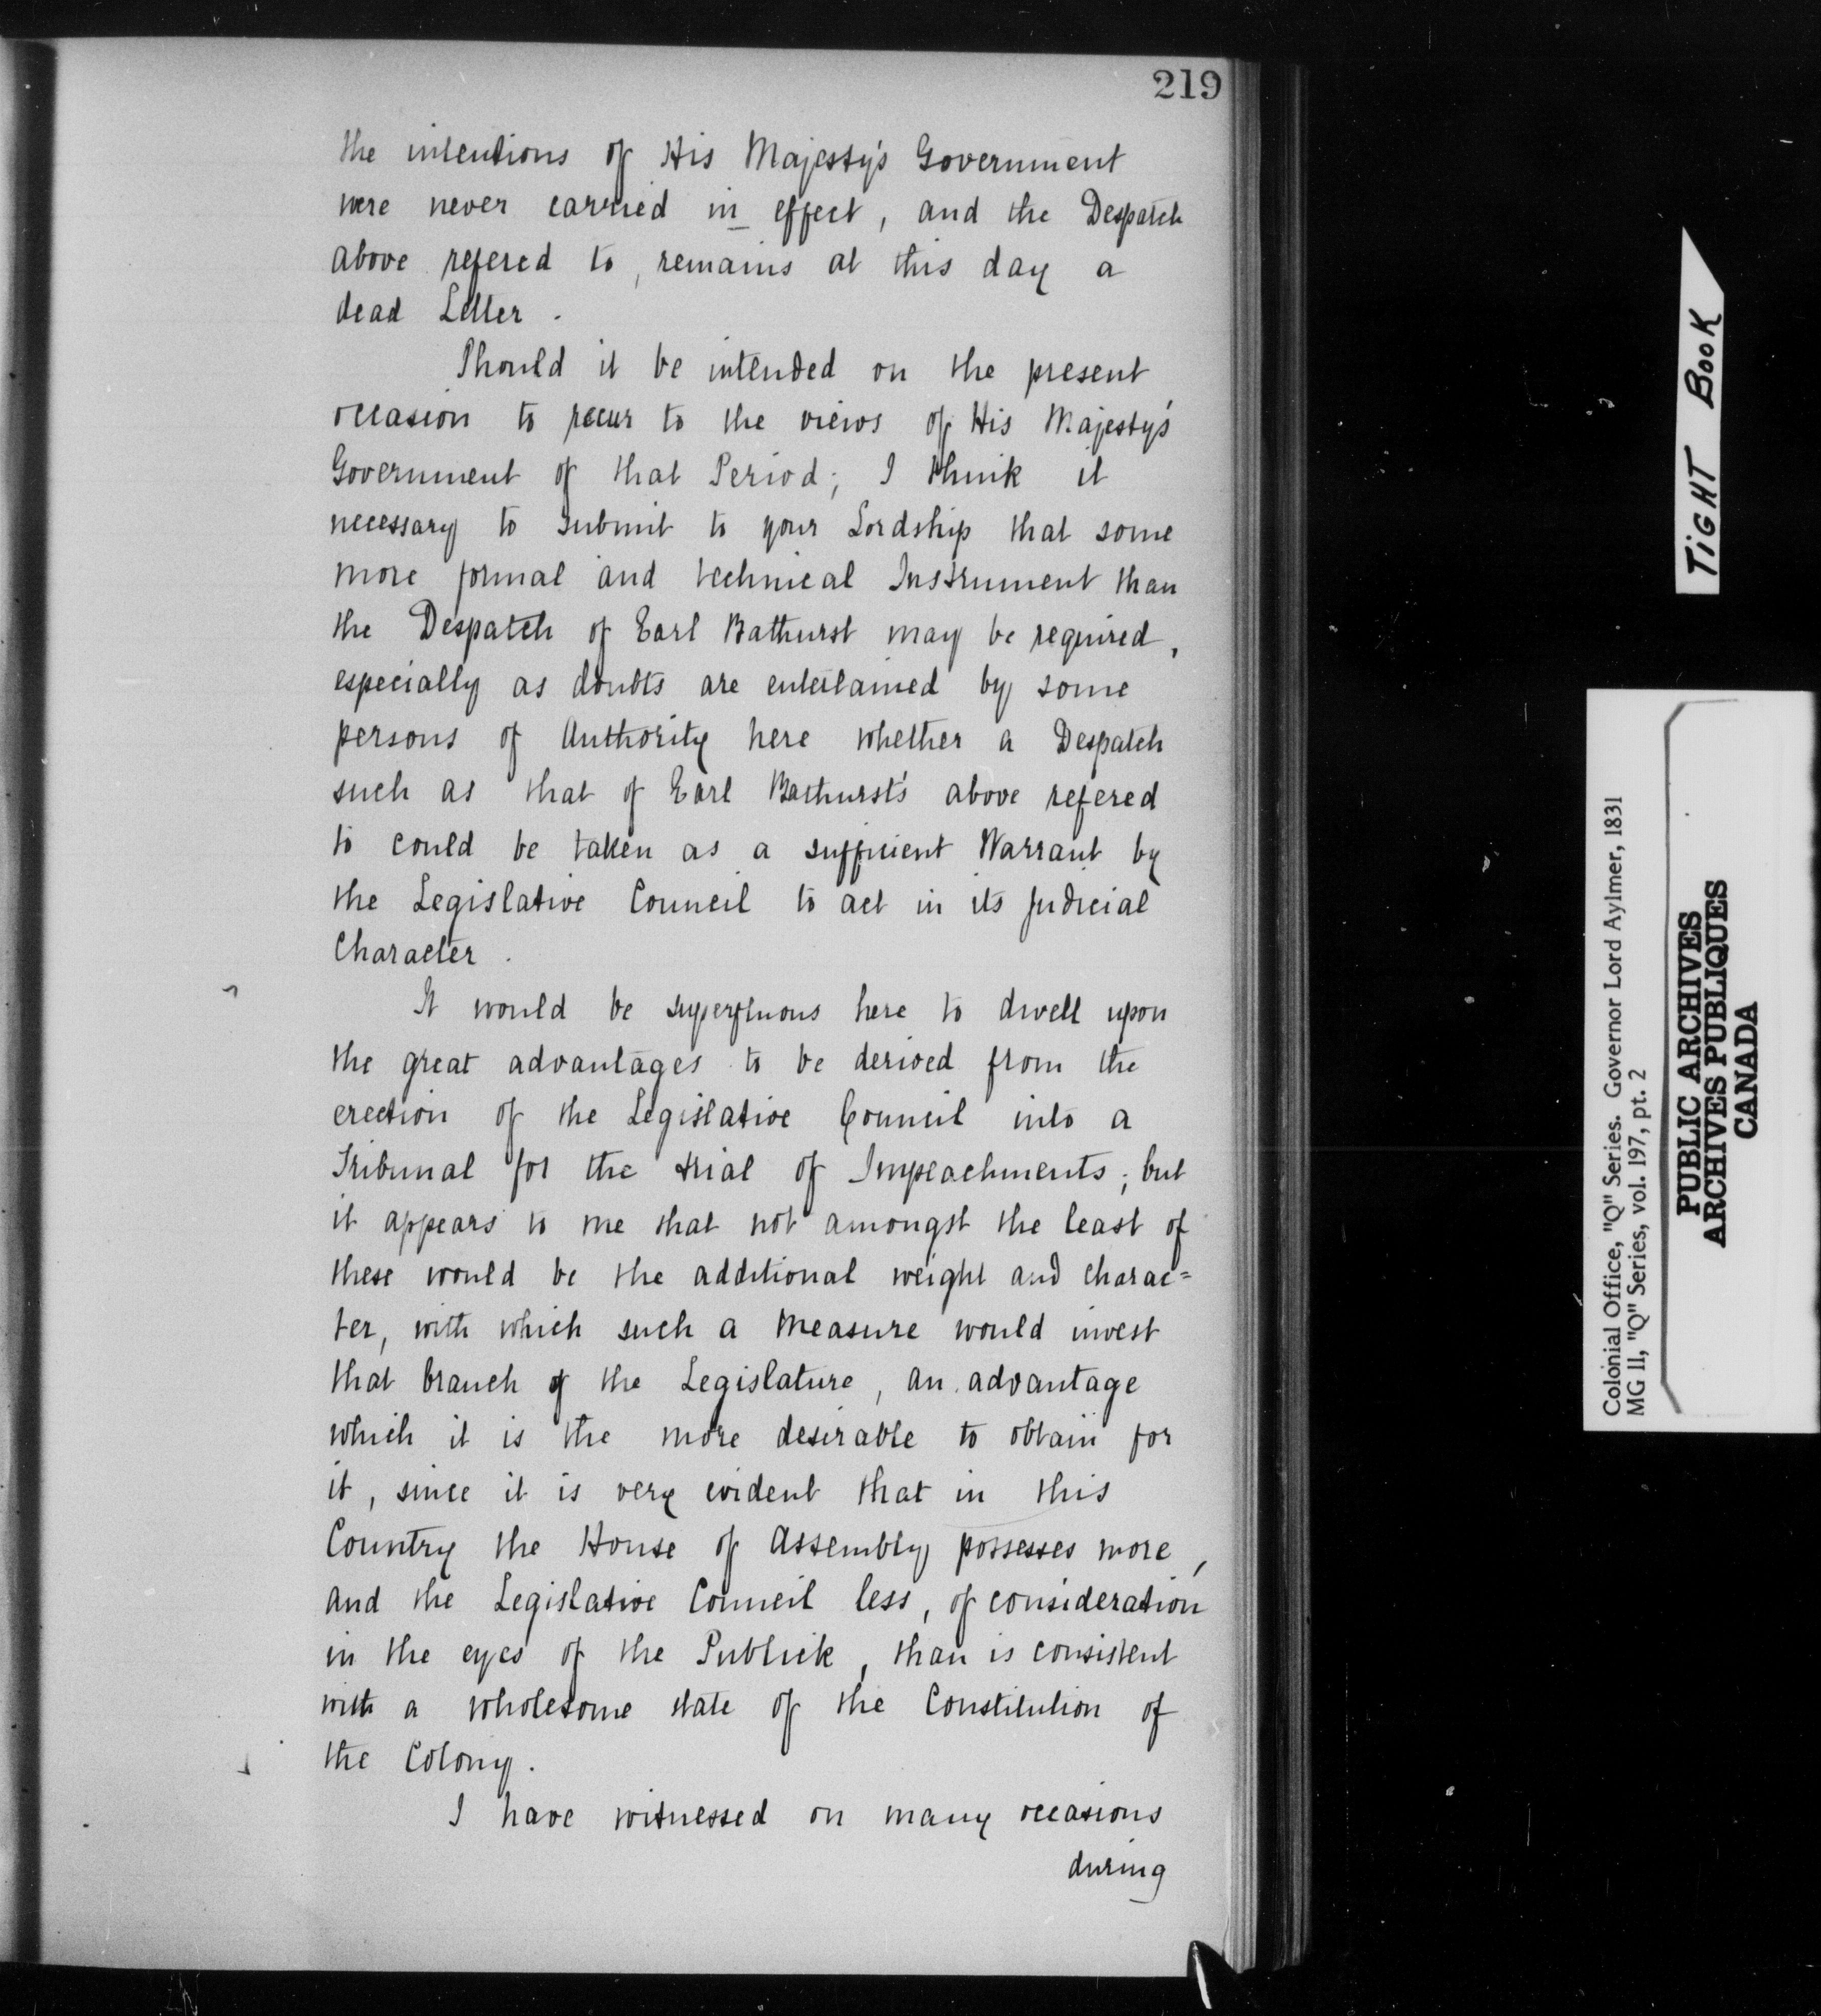 219
the intentions of His Majesty's Government
were never carried in effect, and the Despatch
above refered to, remains at this day a
dead Letter.
Should it be intended on the present
occasion to recur to the views of His Majesty's
Government of that Period; I think it
necessary to submit to your Lordship that some
more formal and technical Instrument than
the Despatch of Earl Bathurst may be required,
especially as doubts are entertained by some
persons of Authority here whether a Despatch
such as that of Earl Bathurst's above refered
to could be taken as a sufficient Warrant by
the Legislative Council to act in its Judicial
Character.
It would be superfluous here to dwell upon
the great advantages to be derived from the
erection of the Legislative Council into a
Tribunal for the trial of Impeachments; but
it appears to me that not amongst the least of
these would be the additional weight and charac=
ter, with which such a measure would invest
that branch of the Legislature, an advantage
which it is the more desirable to obtain for
it, since it is very evident that in this
Country the House of Assembly possesses more,
and the Legislative Council less, of consideration
in the eyes of the Publick, than is consistent
with a wholesome state of the Constitution of
the Colony.
I have witnessed on many occasions
during
TIGHT BOOK
Colonial Office, "Q" Series. Governor Lord Aylmer, 1831
MG 11, "Q" Series, vol. 197, pt. 2
PUBLIC ARCHIVES
ARCHIVES PUBLIQUES
CANADA